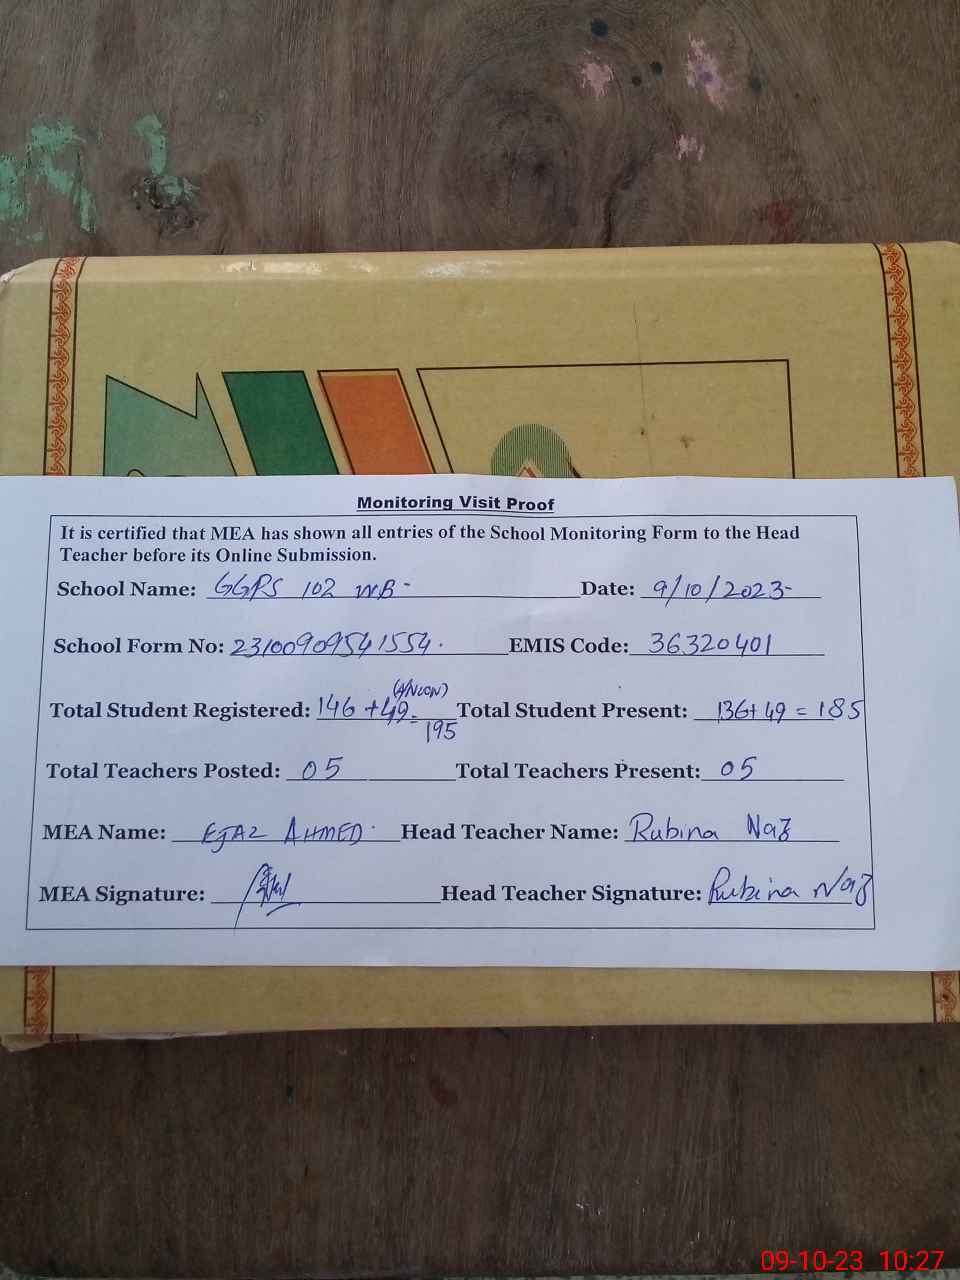 Monitoring Visit Proof
It is certified that MEA has shown all entries of the School Monitoring Form to the Head
Teacher before its Online Submission.
School Name: GGPS 102 WB- Date: 9/10/2023-
School Form No: 23100909541554. EMIS Code: 36320401
(A/NOON)
Total Student Registered: 146 + 49 = Total Student Present: 136+ 49 = 185
195
Total Teachers Posted: 05 Total Teachers Present: 05
MEA Name: EJAZ AHMED Head Teacher Name: Rubina Naz
MEA Signature: Head Teacher Signature: Rubina Naz
09-10-23 10:27